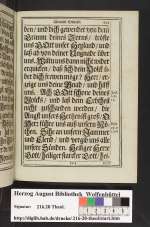 den / und dich gewendet von dem
Grimm deines Zorns / tröste
uns GOtt unser Heyland / und
laß ab von deiner Ungnade über
uns. Wiltu uns dann nicht wieder
erquicken / daß sich dein Volck ü-
ber dich freuen möge? HErr / er-
zeige uns deine Gnad / und hilff
uns. Ach GOtt schone deines
Volcks / und laß dein Erbtheil
nicht zuschanden werden /
Angst unsers Hertzen ist groß / O
HErr führe uns auß unsern Nö-
then. Sihe an unsern Jammer
und Elend / und vergib uns alle
unsere Sünden. Heiliger Herr
Gott / heiliger starcker Gott / hei-
Herzog August Bibliothek Wolfenbüttel
Signatur: 216.28 Theol.
http://diglib.hab.de/drucke/216-28-theol/start.htm